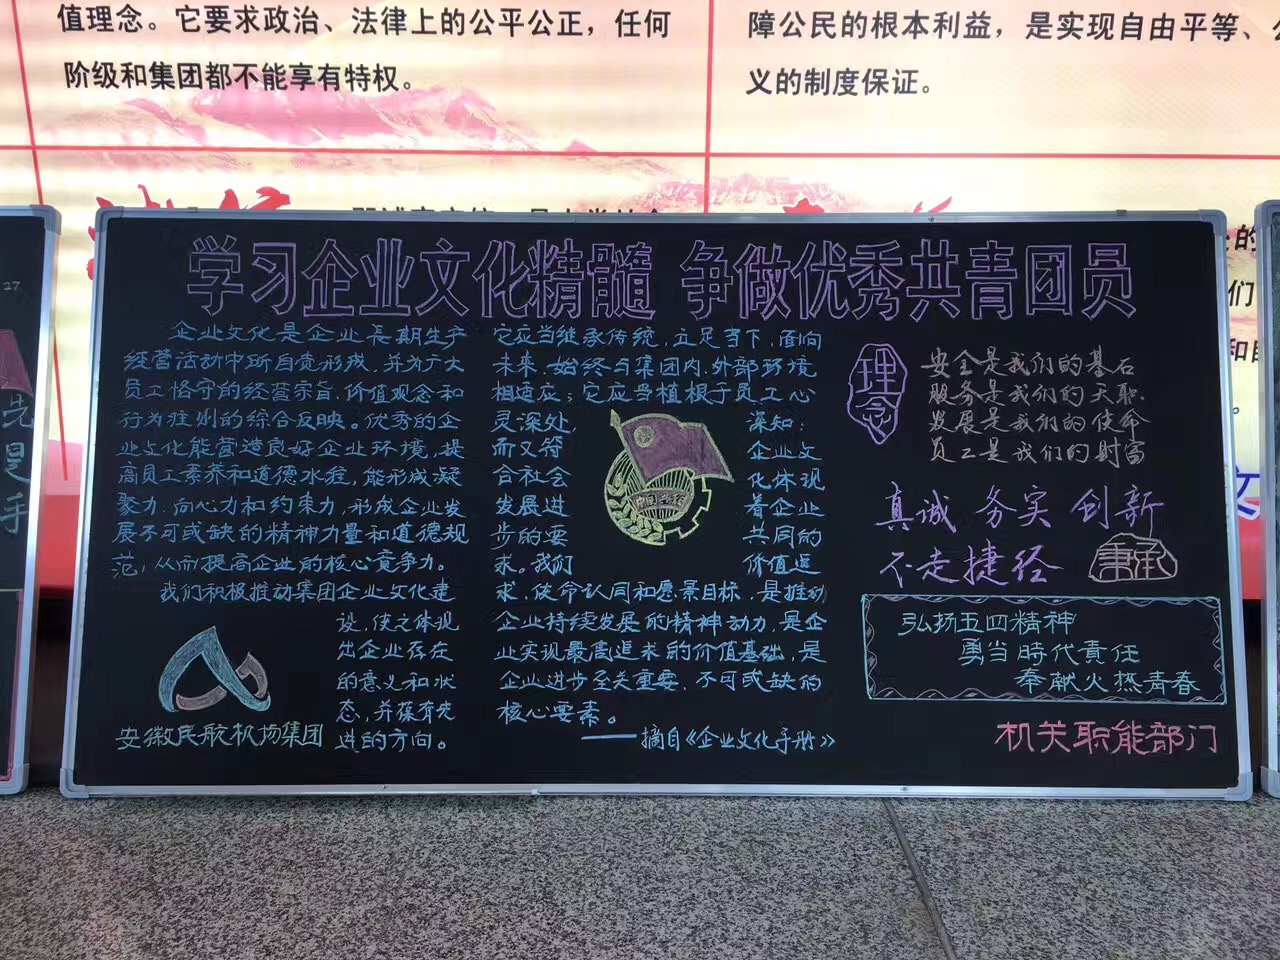 值理念。它要求政治、法律上的公平公正，任何
阶级和集团都不能享有特权。
障公民的根本利益，是实现自由平等、公
义的制度保证。
27
先
是
手
学习企业文化精髓 争做优秀共青团员
企业文化是企业长期生产
经营活动中所自觉形成，并为广大
员工恪守的经营宗旨、价值观念和
行为准则的综合反映。优秀的企
业文化能营造良好企业环境，提
高员工素养和道德水准，能形成凝
聚力、向心力和约束力，形成企业发
展不可或缺的精神力量和道德规
范，从而提高企业的核心竞争力。
我们积极推动集团企业文化建
设，使之体现
出企业存在
的意义和状
态，并葆有先
进的方向。
安徽民航机场集团
它应当继承传统，立足当下，面向
未来，始终与集团内、外部环境
相适应；它应当植根于员工心
灵深处，
而又符
合社会
发展进
步的要
求。我们
深知：
企业文
化体现
着企业
共同的
价值追
求、使命认同和愿景目标，是推动
企业持续发展的精神动力，是企
业实现最高追求的价值基础，是
企业进步至关重要、不可或缺的
核心要素。
——摘自《企业文化手册》
理念
安全是我们的基石
服务是我们的天职
发展是我们的使命
员工是我们的财富
真诚 务实 创新
不走捷径
秉承
弘扬五四精神
勇当時代責任
奉献火热青春
机关职能部门